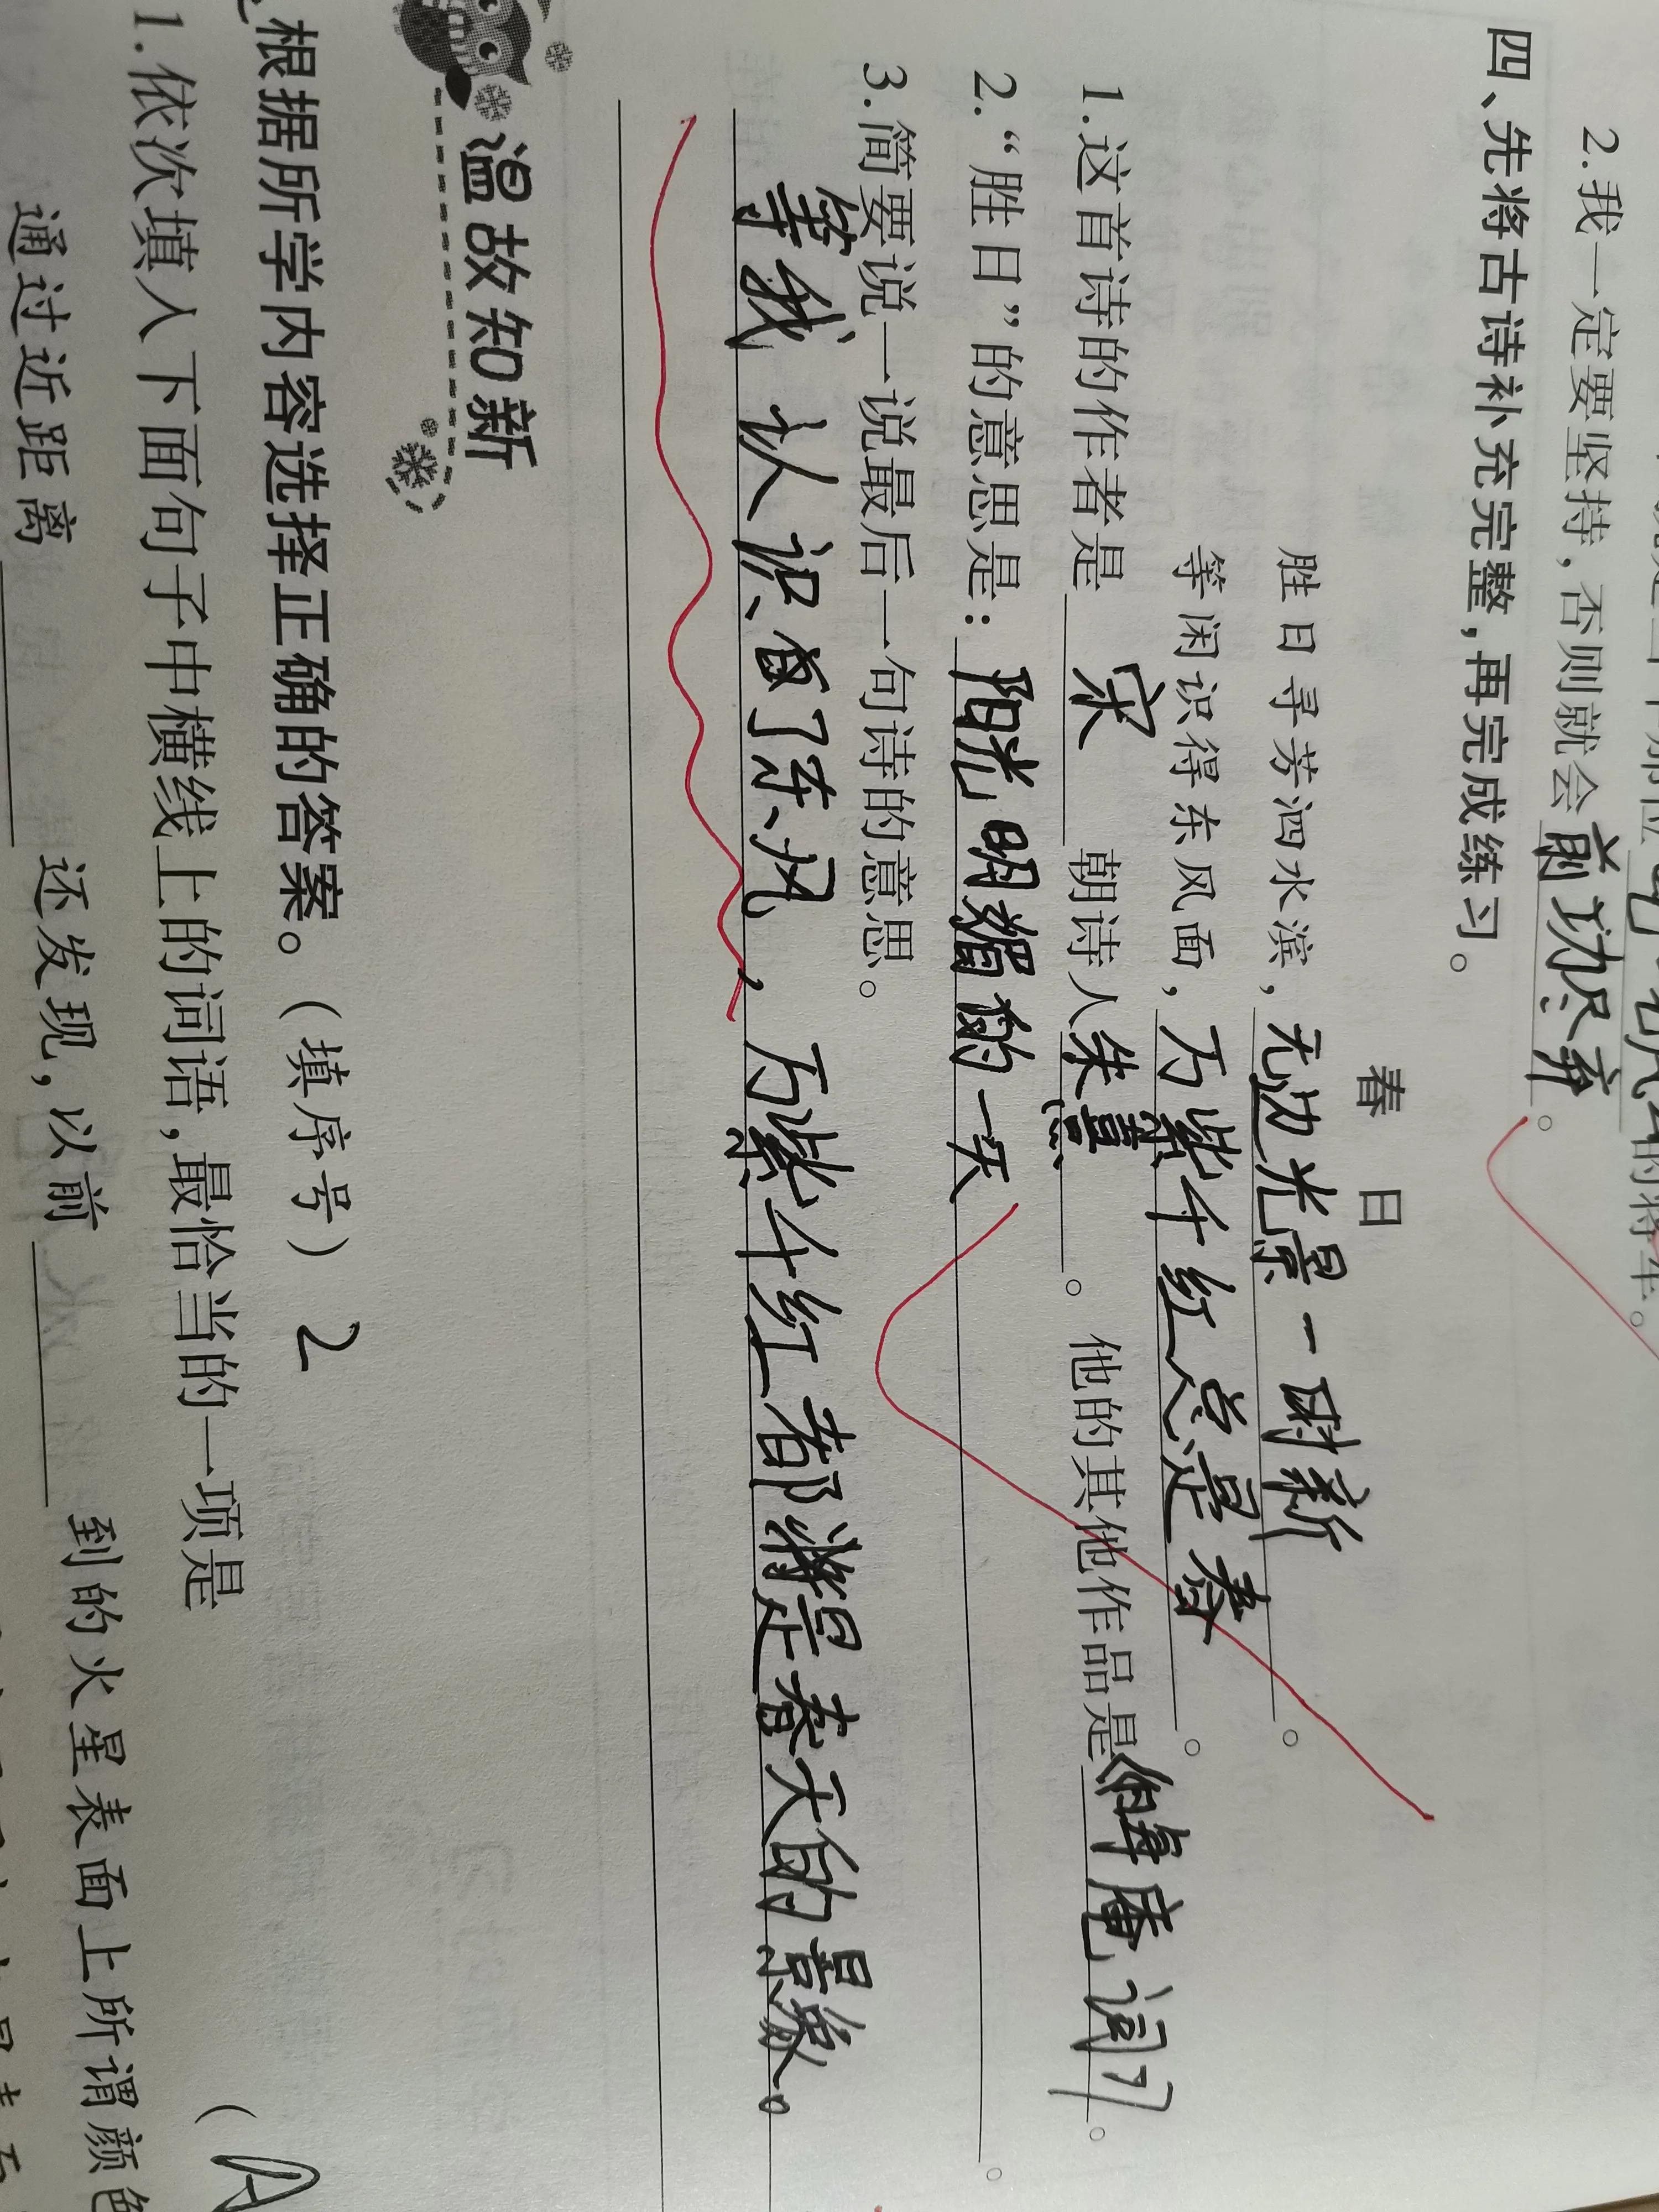 2.我一定要坚持,否则就会前功尽弃。
四、先将古诗补充完整,再完成练习。
春 日
胜日寻芳泗水滨,无边光景一时新。
等闲识得东风面,万紫千红总是春。
1.这首诗的作者是 宋 朝诗人朱熹。他的其他作品是《晦庵词》。
2.“胜日”的意思是:阳光明媚的一天。
3.简要说一说最后一句诗的意思。
等我认识到了东风,万紫千红都将是春天的景象。
温故知新
根据所学内容选择正确的答案。(填序号) 2
1.依次填入下面句子中横线上的词语,最恰当的一项是 (A
通过近距离 还发现,以前 到的火星表面上所谓颜色